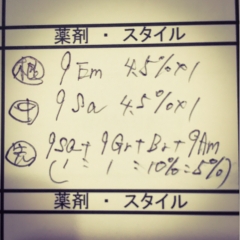 薬剤・スタイル
根 9Em 4.5%×1
中 9Sa 4.5%×1
先 9Sa+9Gr+Br+9Am
(1 = 1 = 10% = 5%)
薬剤・スタイル